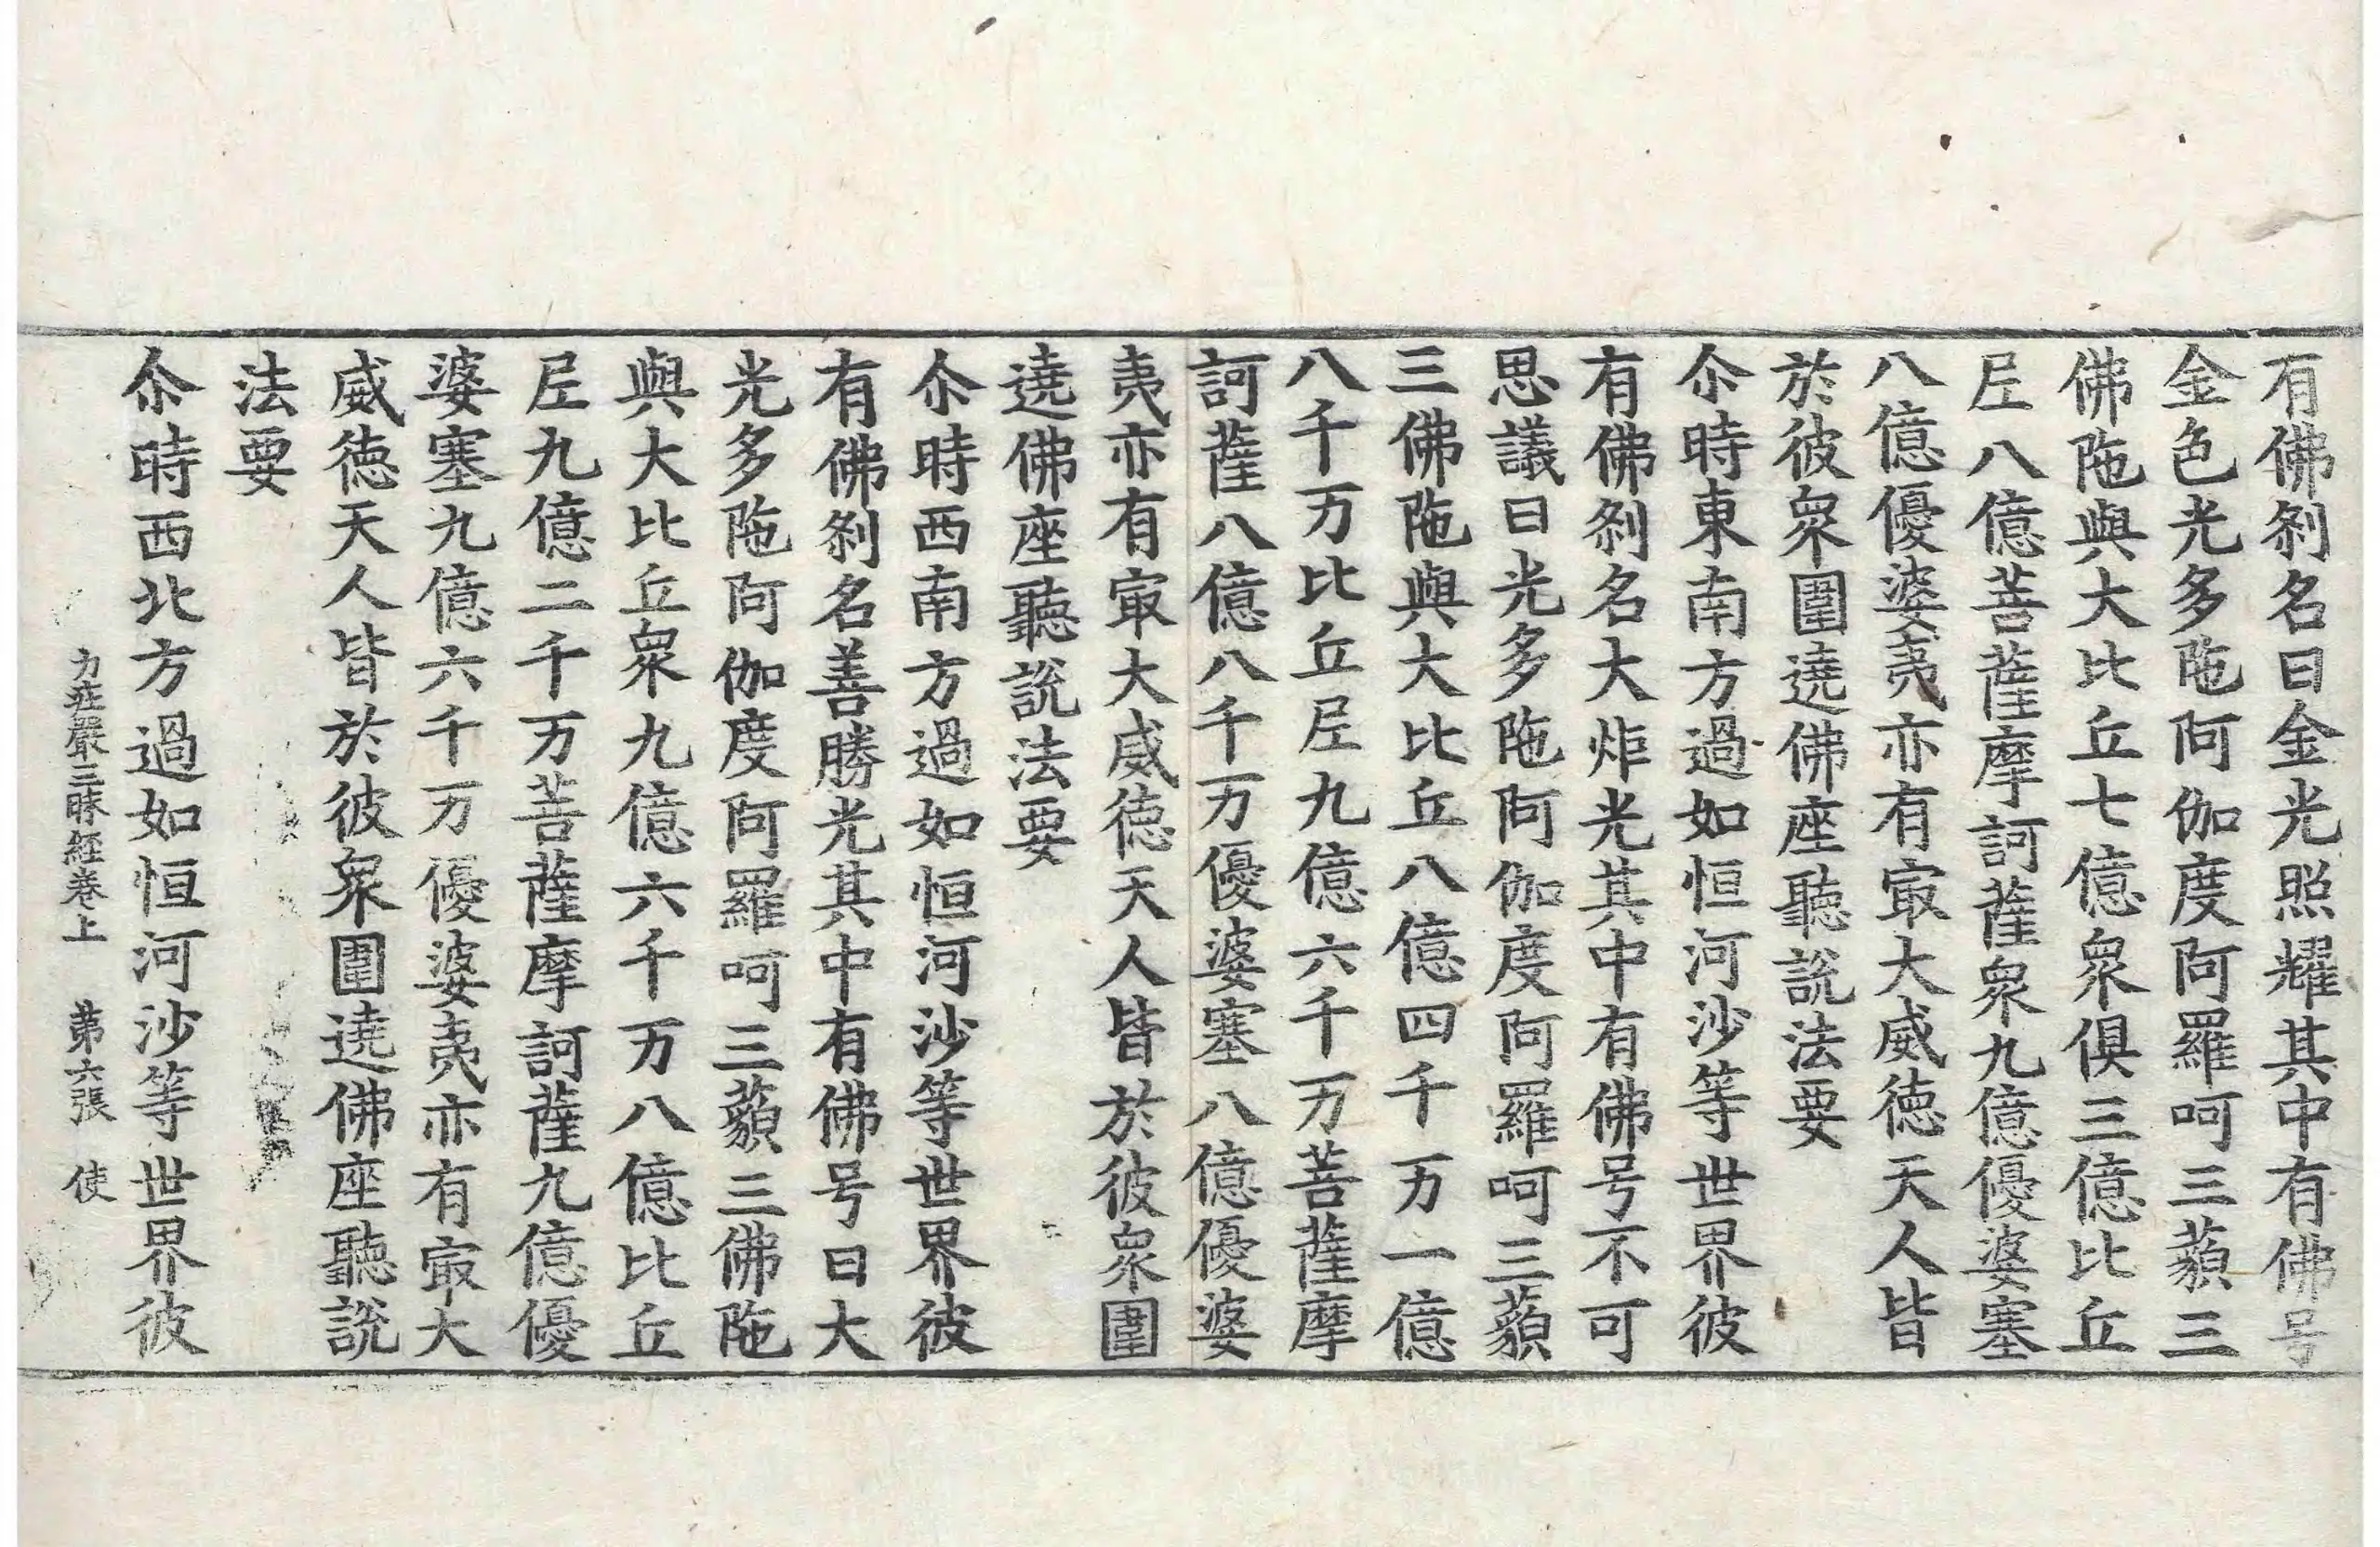 有佛刹名曰金光照耀其中有佛号
金色光多陁阿伽度阿羅呵三藐三
佛陁與大比丘七億衆俱三億比丘
尼八億菩薩摩訶薩衆九億優婆塞
八億優婆夷亦有㝡大威徳天人皆
於彼衆圍遶佛座聽說法要
尒時東南方過如恒河沙等世界彼
有佛刹名大炬光其中有佛号不可
思議日光多陁阿伽度阿羅呵三藐
三佛陁與大比丘八億四千万一億
八千万比丘尼九億六千万菩薩摩
訶薩八億八千万優婆塞八億優婆
夷亦有㝡大威徳天人皆於彼衆圍
遶佛座聽說法要
尒時西南方過如恒河沙等世界彼
有佛刹名善勝光其中有佛号曰大
光多陁阿伽度阿羅呵三藐三佛陁
與大比丘衆九億六千万八億比丘
尼九億二千万菩薩摩訶薩九億優
婆塞九億六千万優婆夷亦有㝡大
威徳天人皆於彼衆圍遶佛座聽說
法要
尒時西北方過如恒河沙等世界彼
力莊嚴三昧經卷上 第六張 使